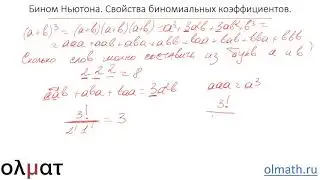 Бином Ньютона. Свойства биномиальных коэффициентов.
(a+b)³ = (a+b)(a+b)(a+b) = a³+3a²b+3ab²+b³ =
= aaa + aab + aba + abb + baa + bab + bba + bbb
Сколько слов можно составить из букв a и b?
2 2 2 = 8
aab + aba + baa = 3a²b
aaa = a³
3!
2! 1!
= 3
3!
олмат
olmath.ru